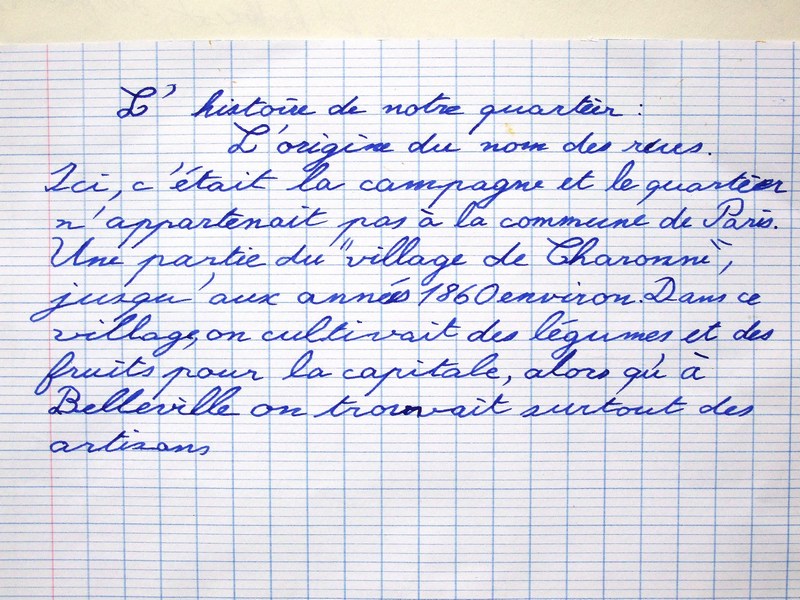 L' histoire de notre quartier :
L'origine du nom des rues.
Ici, c'était la campagne et le quartier
n'appartenait pas à la commune de Paris.
Une partie du "village de Charonne",
jusqu'aux années 1860 environ. Dans ce
village, on cultivait des légumes et des
fruits pour la capitale, alors qu'à
Belleville on trouvait surtout des
artisans